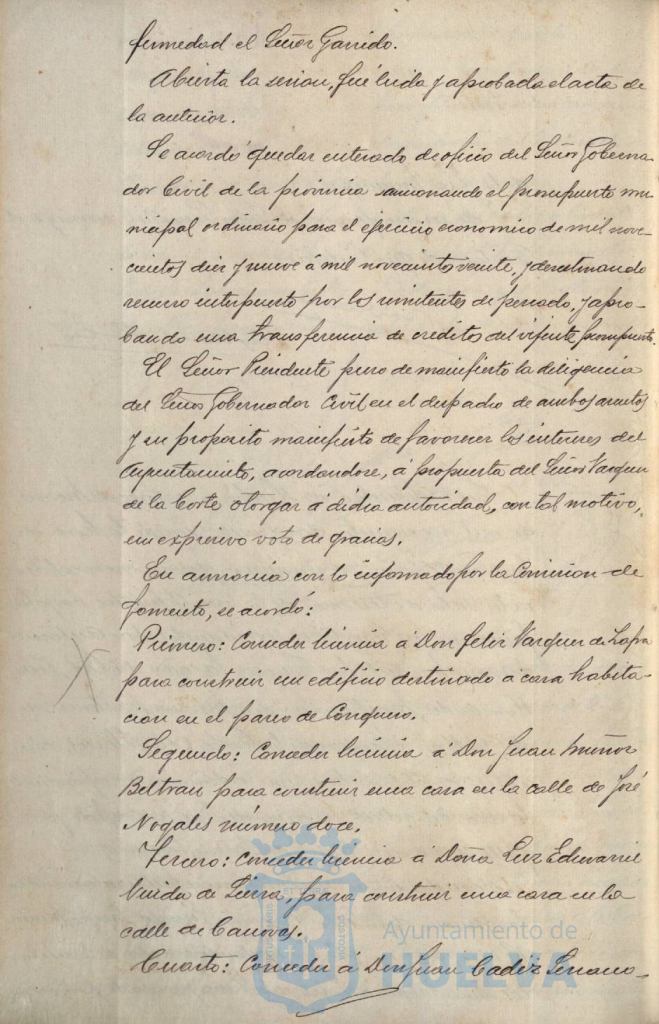 fermedad el Señor Garrido.
Abierta la sesion, fué leida y aprobada el acta de
la anterior.
Se acordó quedar enterado de oficio del Señor Goberna-
dor Civil de la provincia sancionando el presupuesto mu-
nicipal ordinario para el ejercicio economico de mil nove-
cientos diez y nueve á mil novecientos veinte, y desestimando
recurso interpuesto por los remitentes de pescado, y apro-
bando una transferencia de creditos del vigente presupuesto.
El Señor Presidente puso de manifiesto la diligencia
del Señor Gobernador Civil en el despacho de ambos asuntos
y su proposito manifiesto de favorecer los intereses del
Ayuntamiento, acordandose, á propuesta del Señor Vazquez
de la Corte otorgar á dicha autoridad, con tal motivo,
un expresivo voto de gracias.
En armonia con lo informado por la Comision de
Fomento, se acordó:
Primero: Conceder licencia á Don Felix Vazquez de Zafra
para construir un edificio destinado á casa habita-
cion en el paseo de Conquero.
Segundo: Conceder licencia á Don Juan Muñoz
Beltran para construir una casa en la calle de José
Nogales número doce.
Tercero: Conceder licencia á Doña Luz Echevarria
Viuda de Sierra, para construir una casa en la
calle de Canovas.
Cuarto: Conceder á Don Juan Cadiz Serrano
Ayuntamiento de
HUELVA